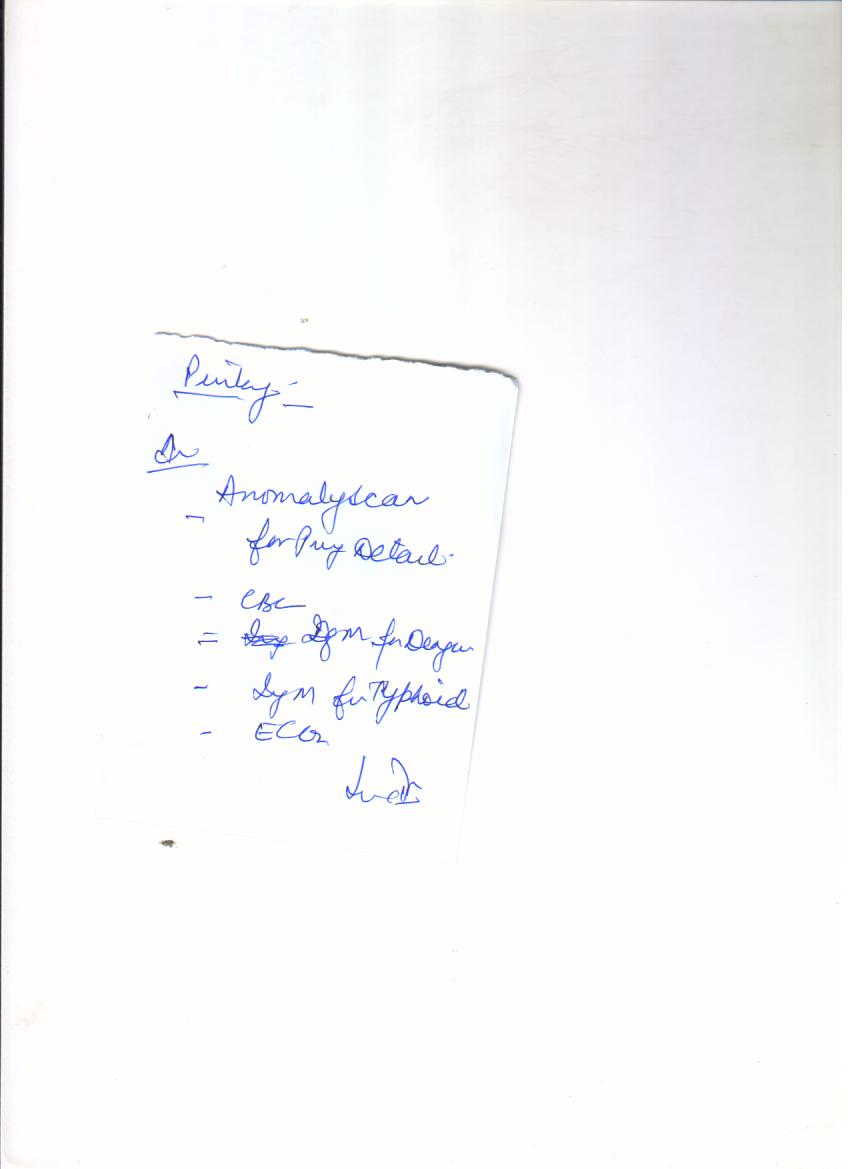 Pinky :-
Anomaly Scan
for Preg Detail.
- CBC
= IgM for Dengue
- IgM for Typhoid
- ECG